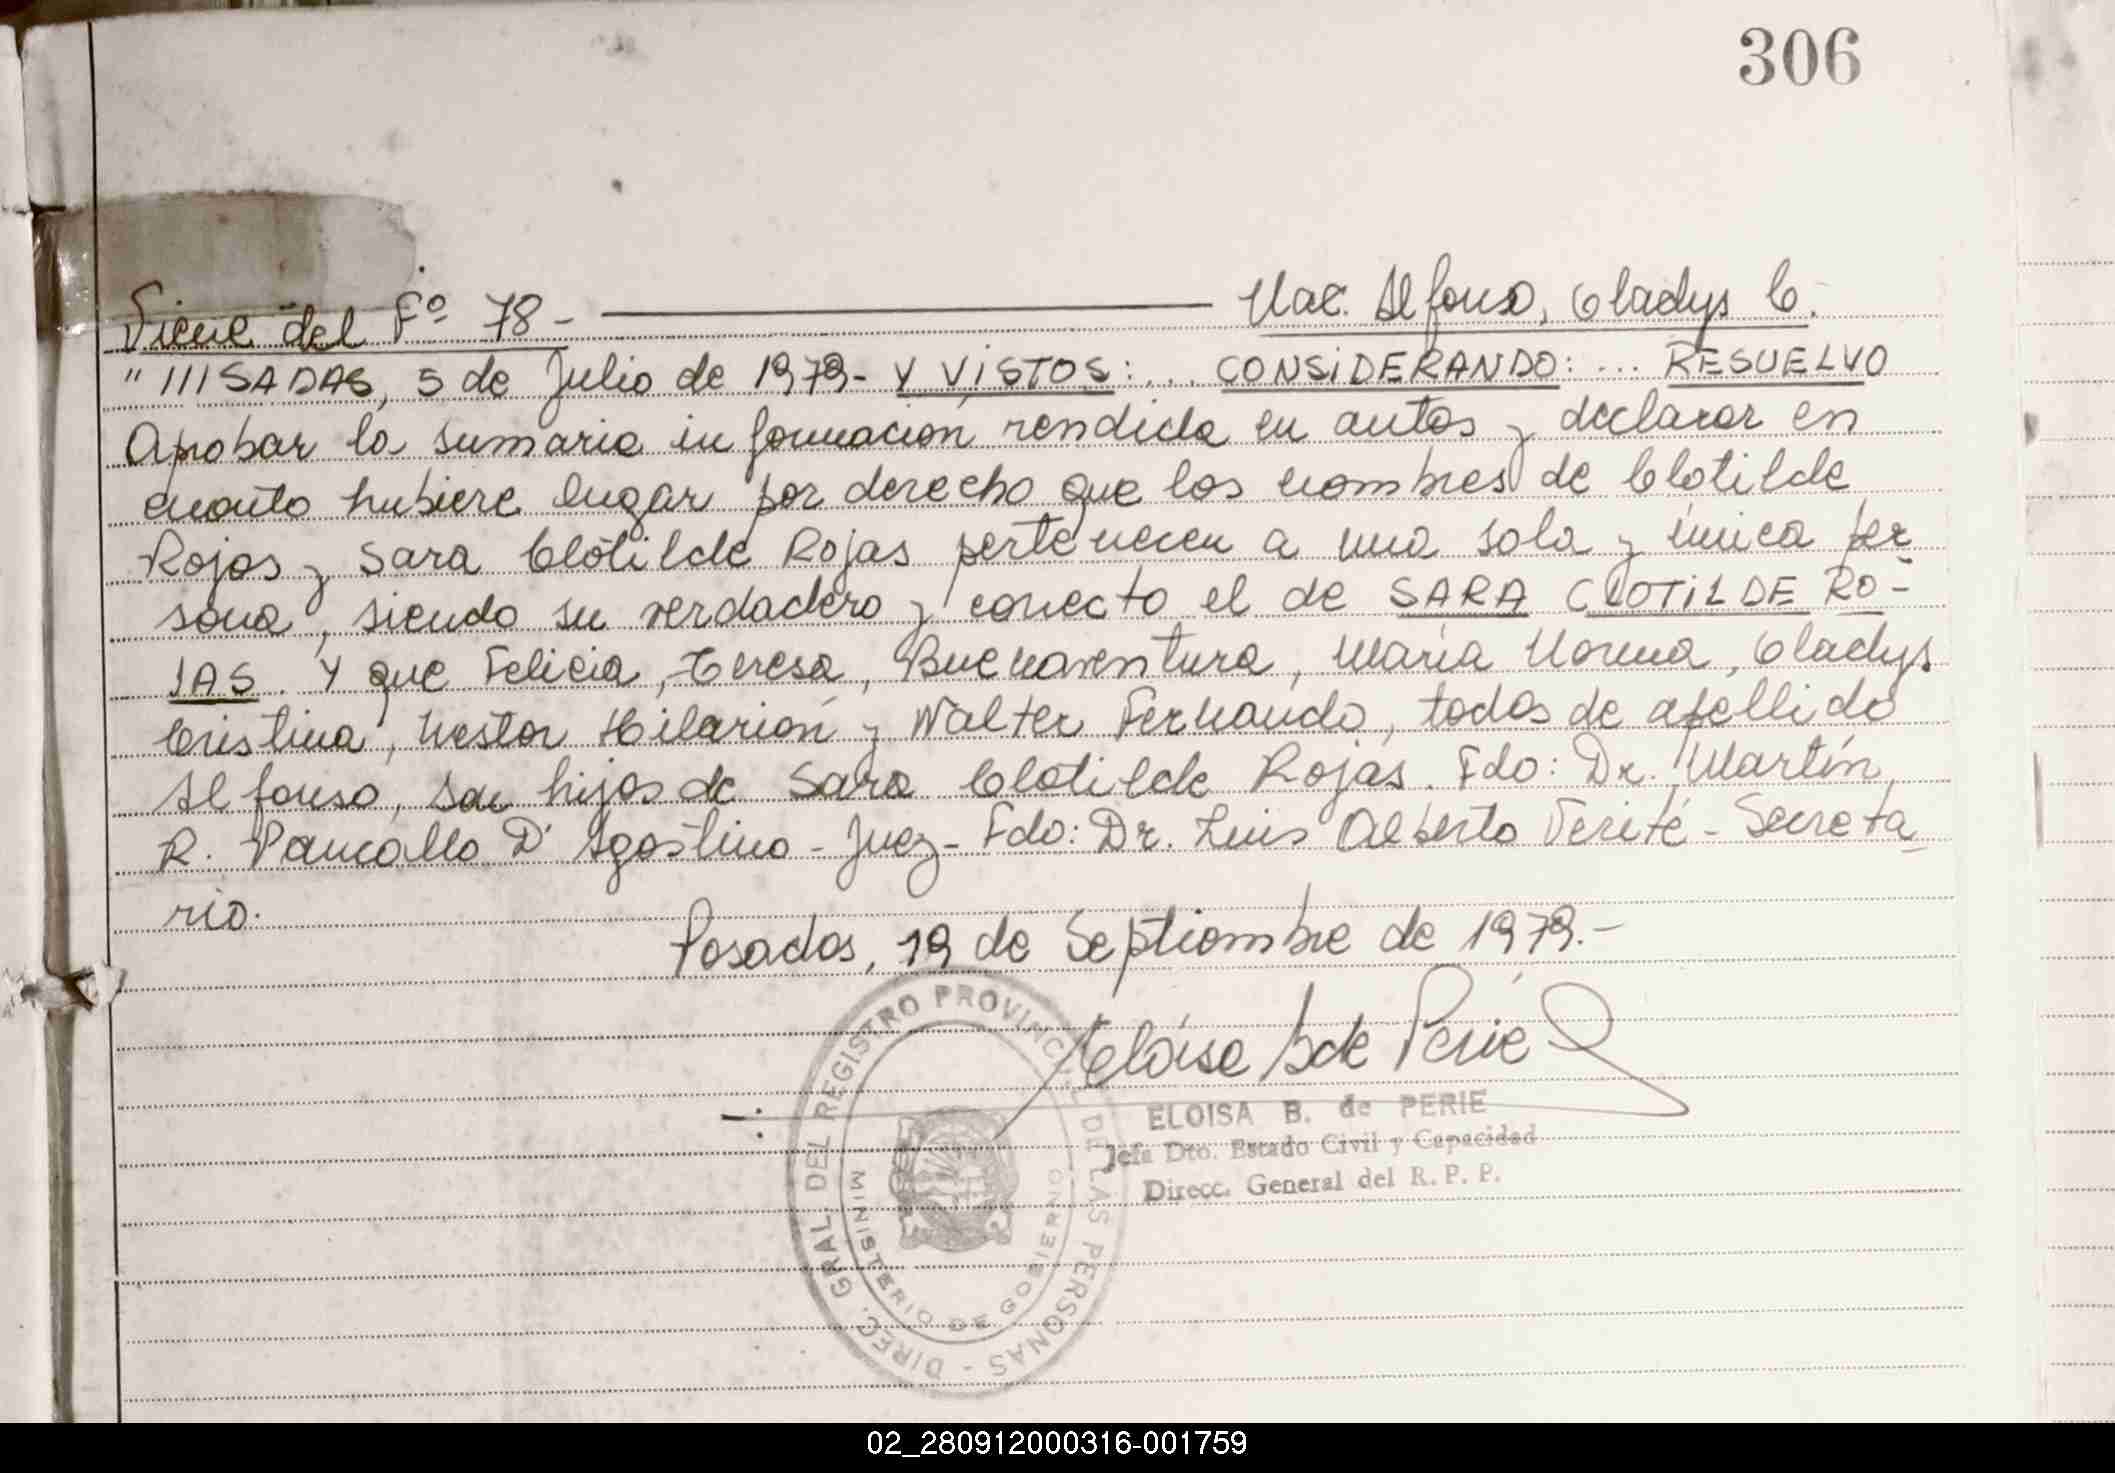 306
Viene del Fº 78 - Nac. Alfonso, Gladys C.
"///SADAS, 5 de Julio de 1979- Y VISTOS:... CONSIDERANDO:... RESUELVO
Aprobar la sumaria información rendida en autos y declarar en
cuanto hubiere lugar por derecho que los nombres de Clotilde
Rojas y Sara Clotilde Rojas pertenecen a una sola y única per
sona, siendo su verdadero y correcto el de SARA CLOTILDE RO-
JAS. Y que Felicia, Teresa, Buenaventura, María Norma, Gladys
Cristina, Nestor Hilarión y Walter Fernando, todos de apellido
Alfonso, son hijos de Sara Clotilde Rojas. Fdo: Dr. Martín
R. D' Agostino - Juez - Fdo: Dr. Luis Alberto Verité - Secreta_
rio.
Posadas, 19 de Septiembre de 1979.-
Eloisa B de Perié
ELOISA B. de PERIE
Jefa Dto. Estado Civil y Capacidad
Direcc. General del R. P. P.
DIREC. GRAL. DEL REGISTRO PROVINCIAL DE LAS PERSONAS -
MINISTERIO DE GOBIERNO
02_280912000316-001759